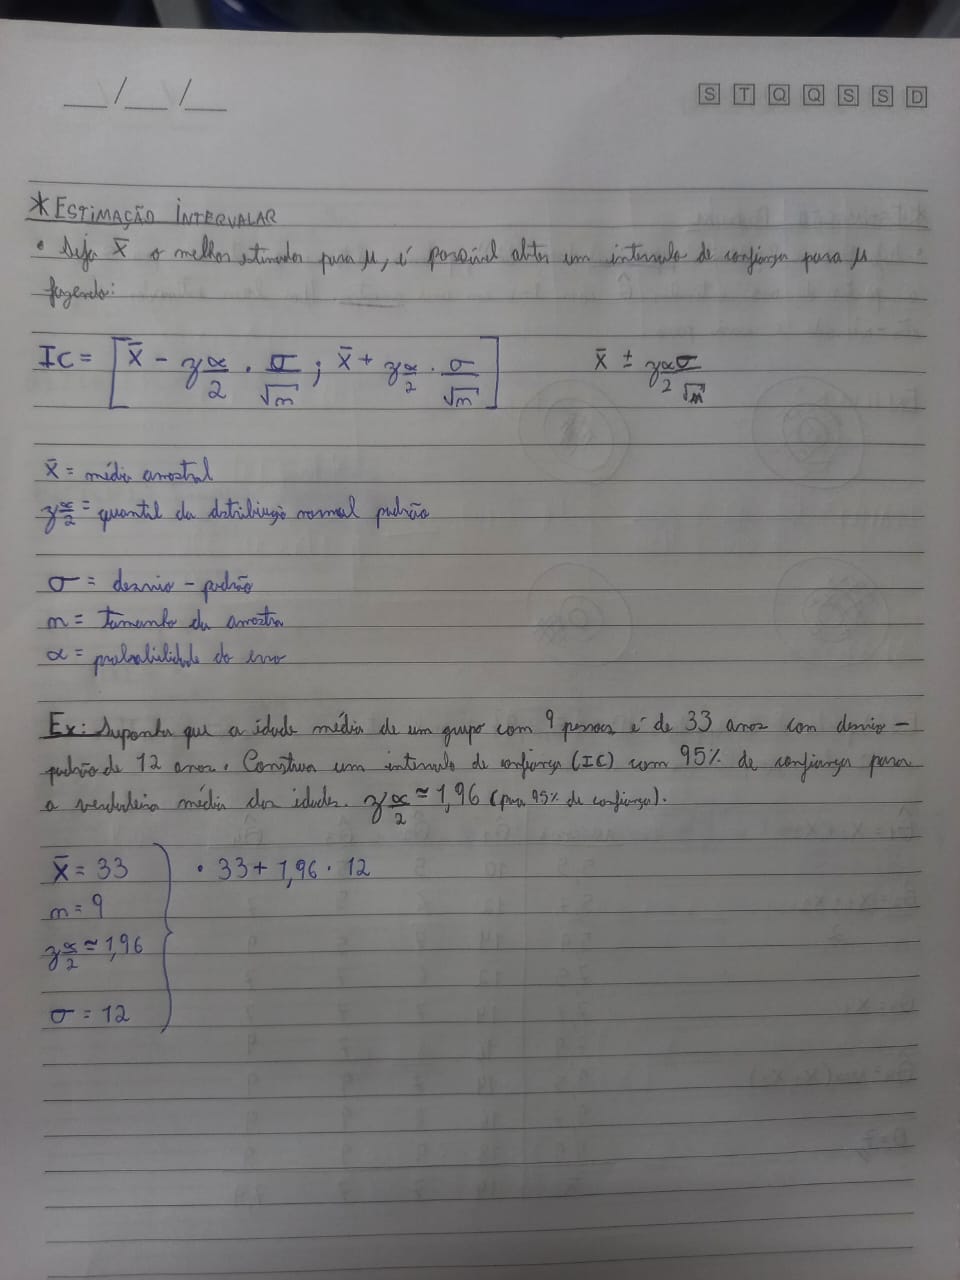 __/__/__ S T Q Q S S D
* ESTIMAÇÃO INTERVALAR
• Seja x̄ o melhor estimador para μ, é possível obter um intervalo de confiança para μ
fazendo:
IC = [x̄ - zα/2 · σ/√n ; x̄ + zα/2 · σ/√n] x̄ ± zα/2 σ/√n
x̄ = média amostral
zα/2 = quantil da distribuição normal padrão
σ = desvio - padrão
n = tamanho da amostra
α = probabilidade do erro
Ex: Suponha que a idade média de um grupo com 9 pessoas é de 33 anos com desvio -
padrão de 12 anos. Construa um intervalo de confiança (IC) com 95% de confiança para
a verdadeira média das idades. zα/2 ≃ 1,96 (para 95% de confiança).
x̄ = 33 • 33 + 1,96 · 12
n = 9
zα/2 ≃ 1,96
σ = 12